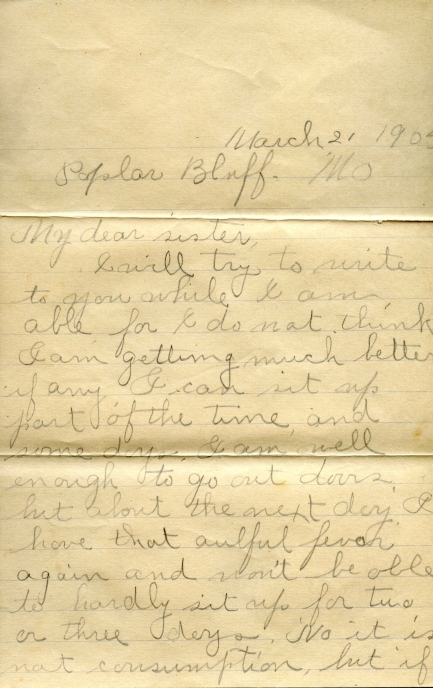 March 21 190
Poplar Bluff. Mo
My dear sister,
I will try to write
to you while I am
able for I do not think
I am getting much better
if any I can sit up
part of the time, and
some days, I am well
enough to go out doors
but about the next day I
have that aulful fevor
again and won't be able
to hardly sit up for two
or three days. No it is
not consumption, but if